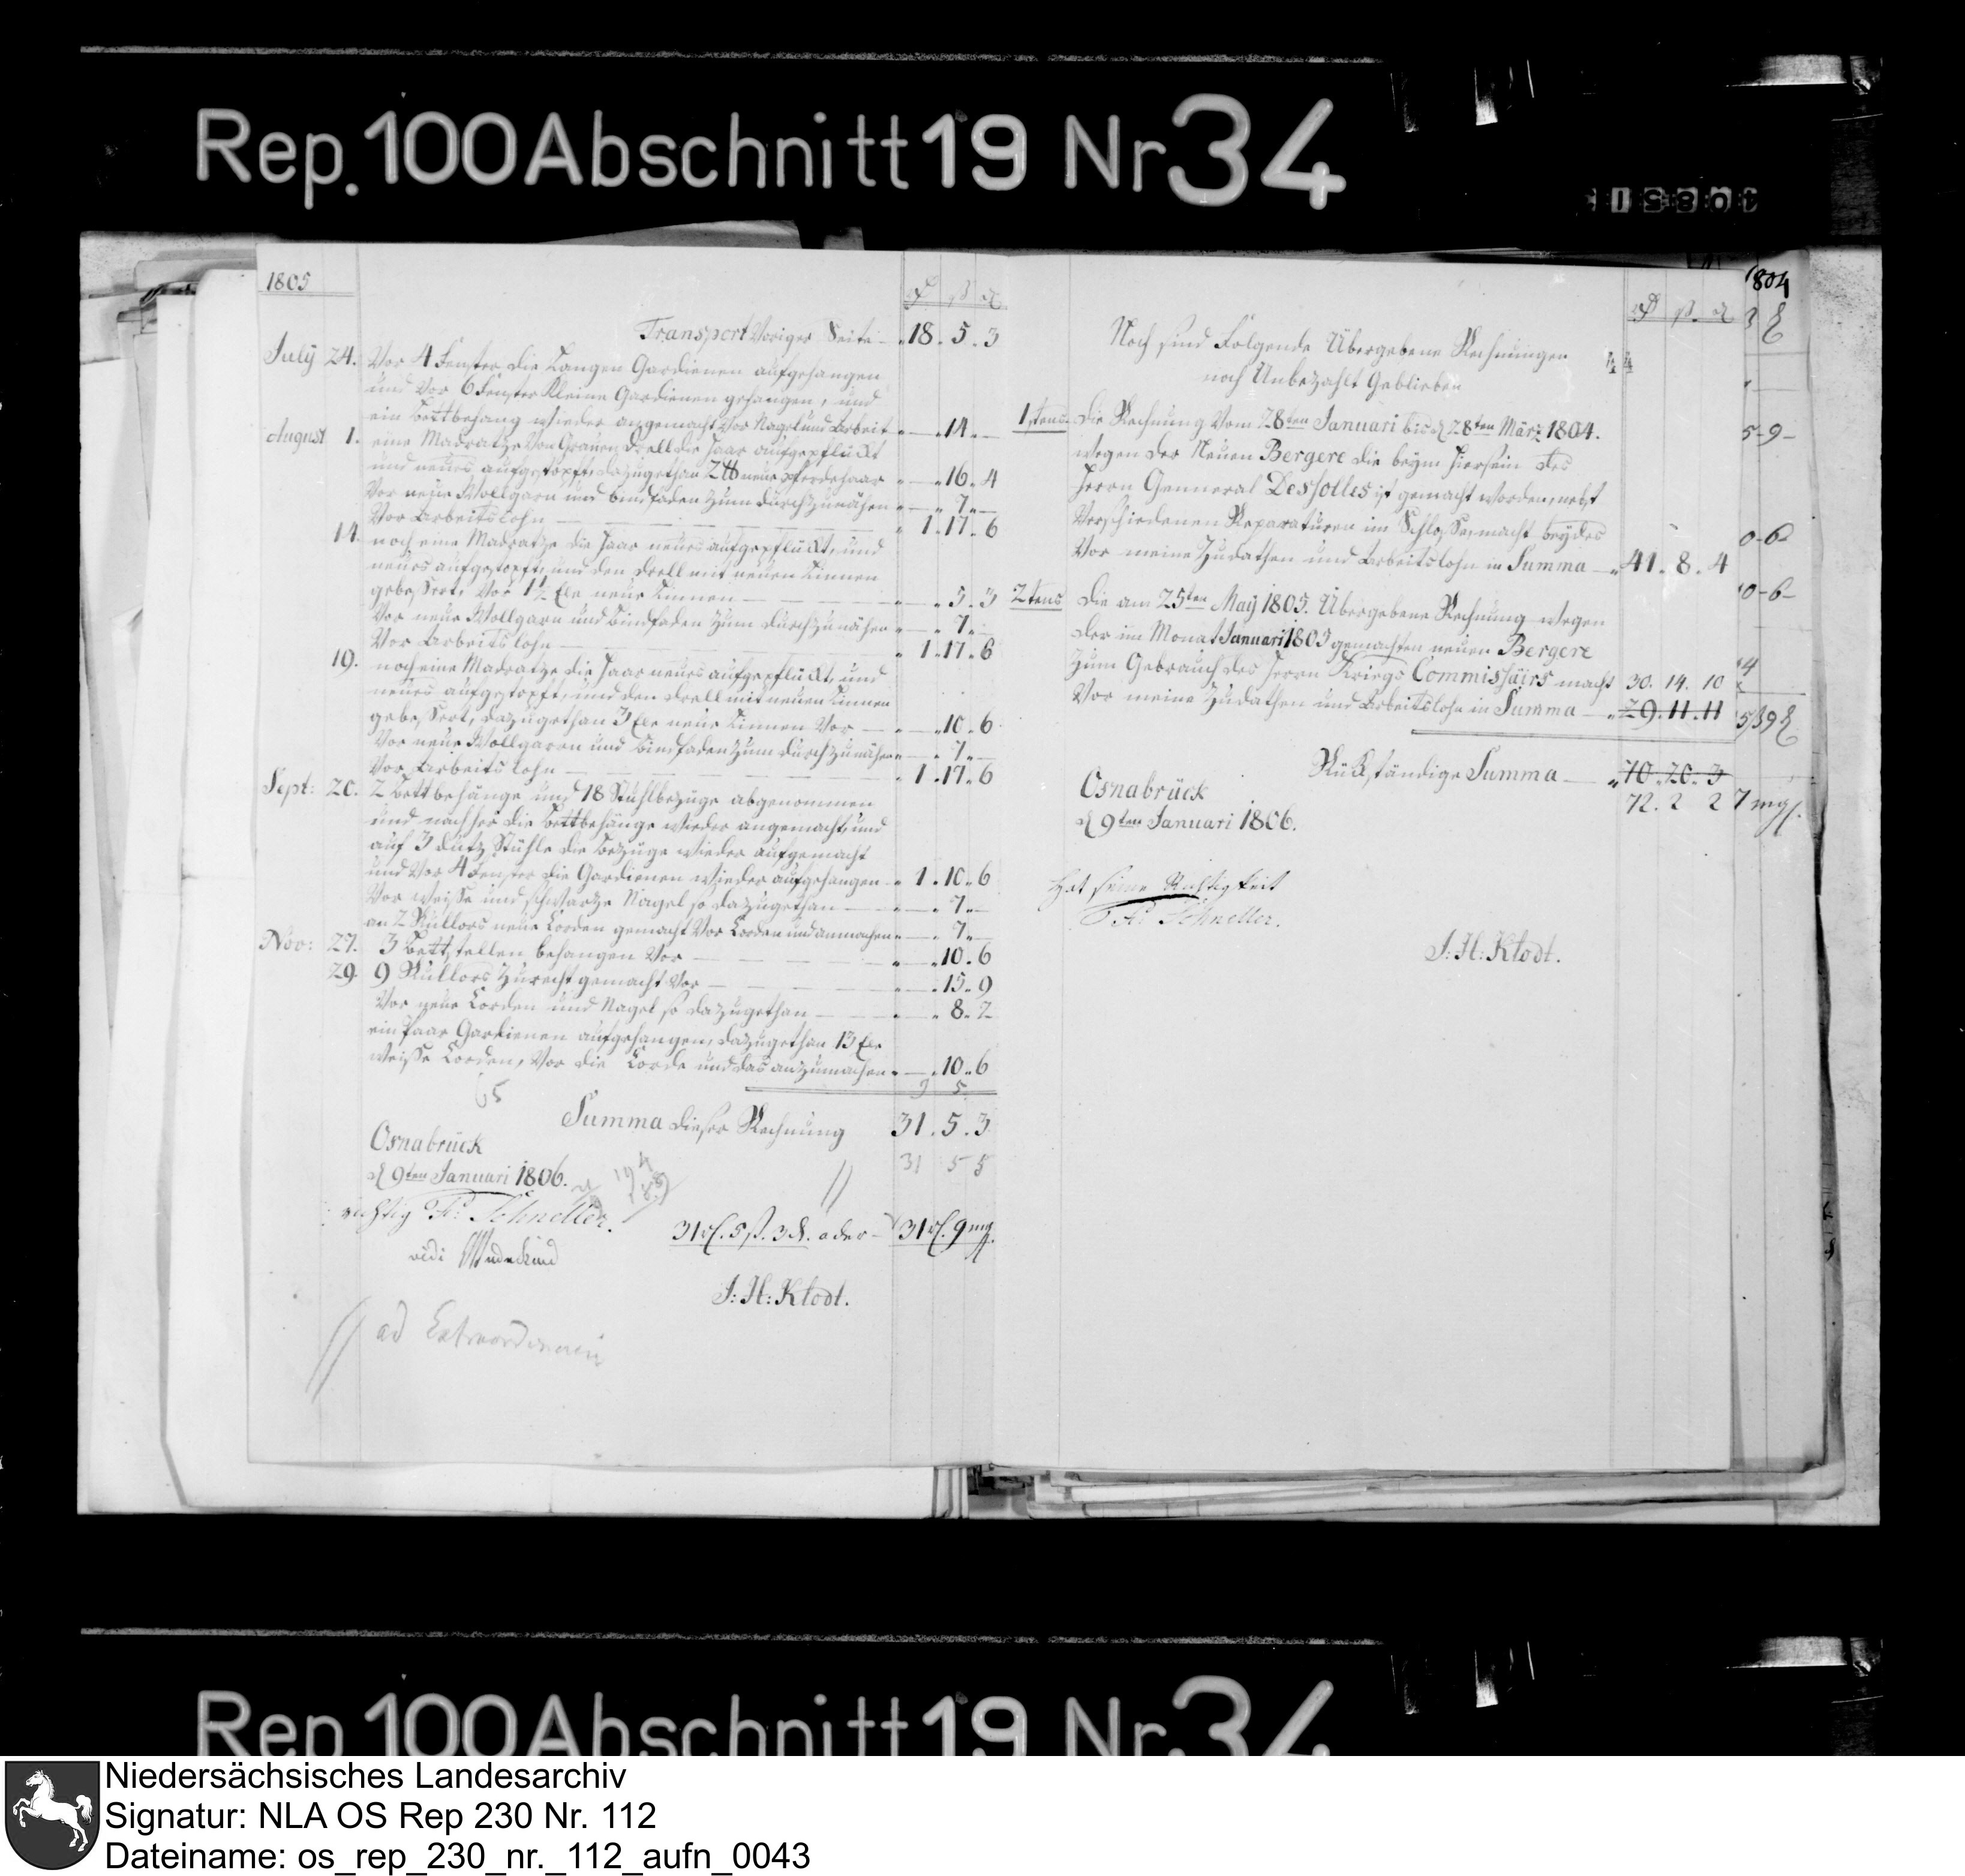 Rep. 100 Abschnitt 19 Nr 34
1805
Transport Voriger Seite 18. 5. 3
July 24. Vor 4 Fenster die Langen Gardienen aufgehangen
und Vor 6 Fenster Kleine Gardienen gehangen, und
ein Bettbehang wieder angemacht vor Nagel und Arbeit 14. —
August 1. eine Madratze Von Grauen Drell die Haar aufgepflückt
und neues aufgestopft, dazugethan 2 ℔ neue Pferdehaar 16. 4
Vor neue Wollgarn und bindfaden zum durchzunähen 7. —
Vor Arbeitslohn 1. 17. 6
14. noch eine Madratze die Haar neues aufgepflückt, und
neues aufgestopft, und den Drell mit neuen Linnen
gebessert, Vor 1½ Ele neue Linnen 5. 3
Vor neue Wollgarn und Bindfaden zum durchzunähen 7. —
Vor Arbeitslohn 1. 17. 6
19. noch eine Madratze die Haar neues aufgepflückt, und
neues aufgestopft, und den Drell mit neuen Linnen
gebessert, dazugethan 3 Ele neue Linnen Vor 10. 6
Vor neue Wollgaren und Bindfaden zum durchzunähen 7. —
Vor Arbeitslohn 1. 17. 6
Sept: 20. 2 Bettbehänge und 18 Stuhlbezüge abgenommen
und nachher die Bettbehänge wieder angemacht, und
auf 3 dutz Stühle die Bezüge wieder aufgemacht
und Vor 4 Fenster die Gardienen wieder aufgehangen 1. 10. 6
Vor weisse und schwartze Nagel so dazugethan 7. —
an 2 Rullors neue Corden gemacht Vor Corden und anmachen 7. —
Nov: 27. 3 Bettstellen behangen Vor 10. 6
29. 9 Rullors Zurecht gemacht Vor 15. 9
Vor neue Corden und Nagel so dazugethan 8. 2
ein Paar Gardienen aufgehangen, dazugethan 13 Ele
weisse Corden, Vor die Corde und das anzumachen 10. 6
9 5
Summa dieser Rechnung 31. 5. 3
31 5 5
Osnabrück
d 9ten Januari 1806.
richtig Fr: Schneller.
31 rl. 5 ß. 3 d. oder 31 rl. 9 mg.
vidi
J: H: Klodt.
ad Extraordinaria
Noch sind Folgende Übergebene Rechnungen
noch Unbezahlt Geblieben
1stens. Die Rechnung Vom 28ten Januari bis d 28ten März 1804.
wegen der Neuen Bergere die beym Hiersein des
Herrn Genneral Dessolles ist gemacht worden, nebst
Verschiedenen Reparaturen im Schlosse, macht beydes
Vor meine Zudathen und Arbeitslohn in Summa 41. 8. 4
2tens Die am 25ten May 1805. Übergebene Rechnung wegen
der im Monat Januari 1805 gemachten neuen Bergere
Zum Gebrauch des Herrn Kriegs Commissairs macht 30. 14. 10
Vor meine Zudathen und Arbeitslohn in Summa 29. 11. 11
Rückständige Summa 70. 20. 3
72. 2 2 7 mgl.
Osnabrück
d 9ten Januari 1806.
Hat seine Richtigkeit
Fr: Schneller.
J: H: Klodt.
1804
5-9-
0-6
0-6-
Rep. 100 Abschnitt 19 Nr. 34
Niedersächsisches Landesarchiv
Signatur: NLA OS Rep 230 Nr. 112
Dateiname: os_rep_230_nr._112_aufn_0043